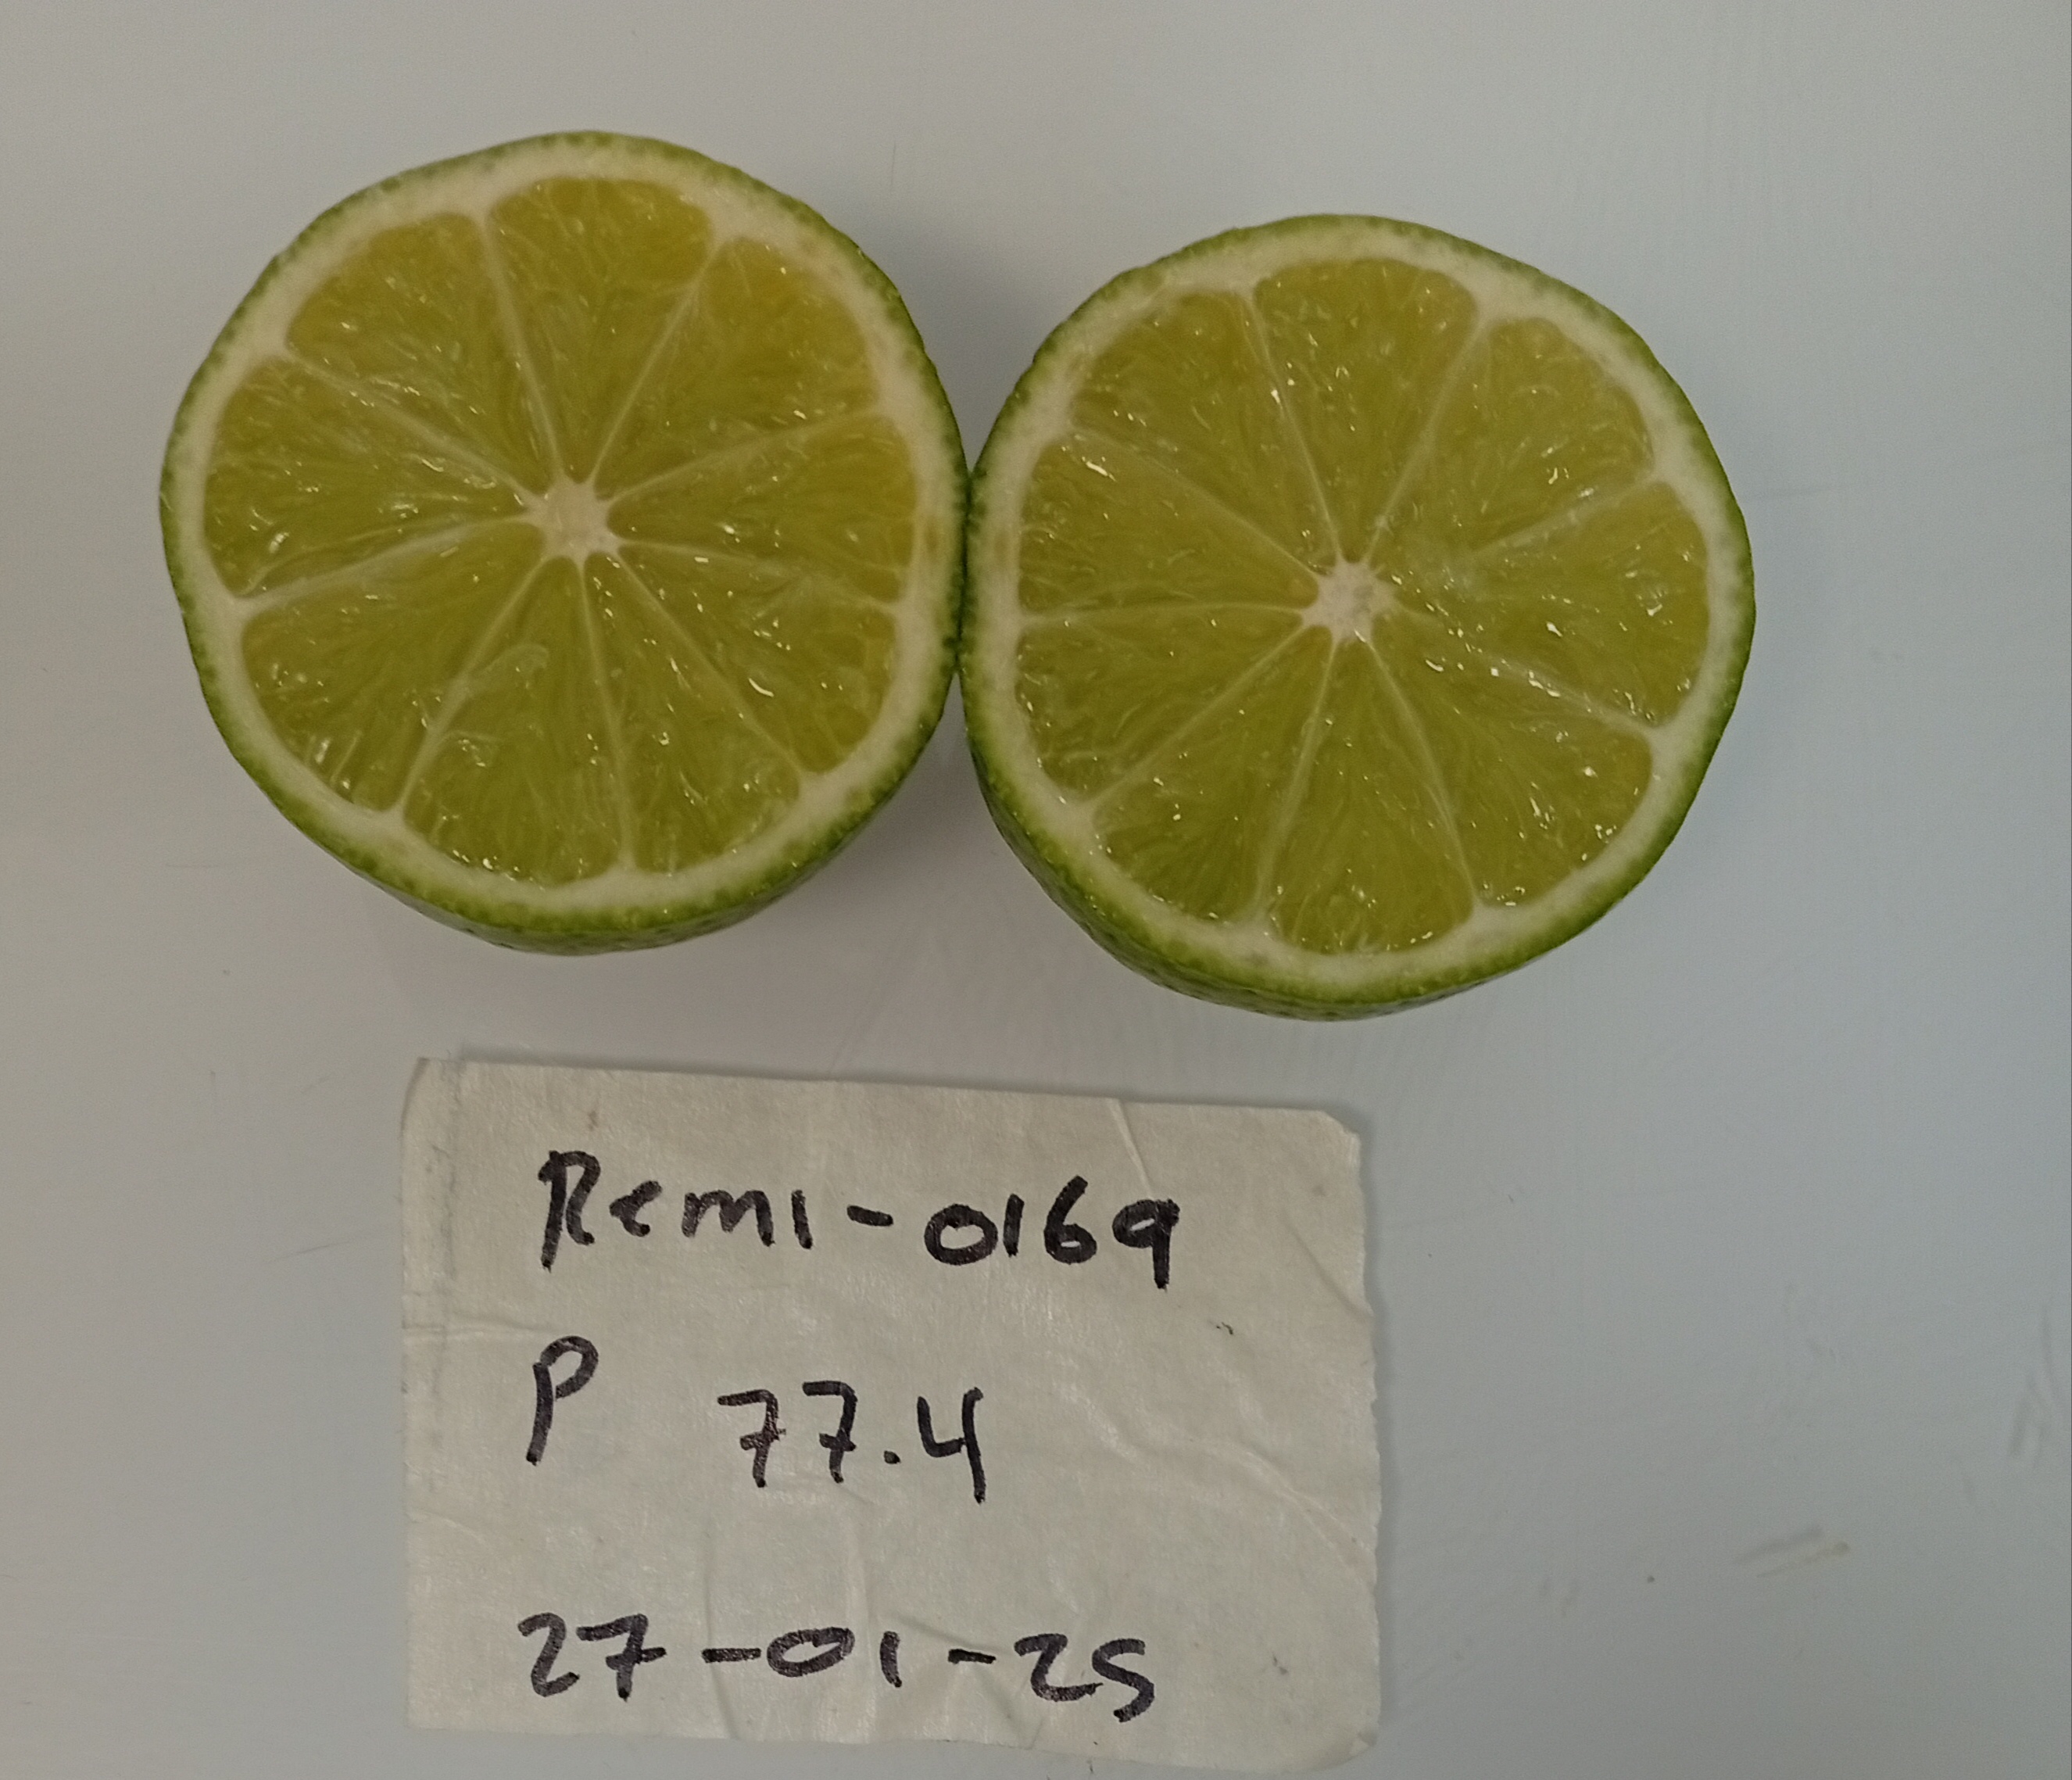 Remi-0169
P 77.4
27-01-25